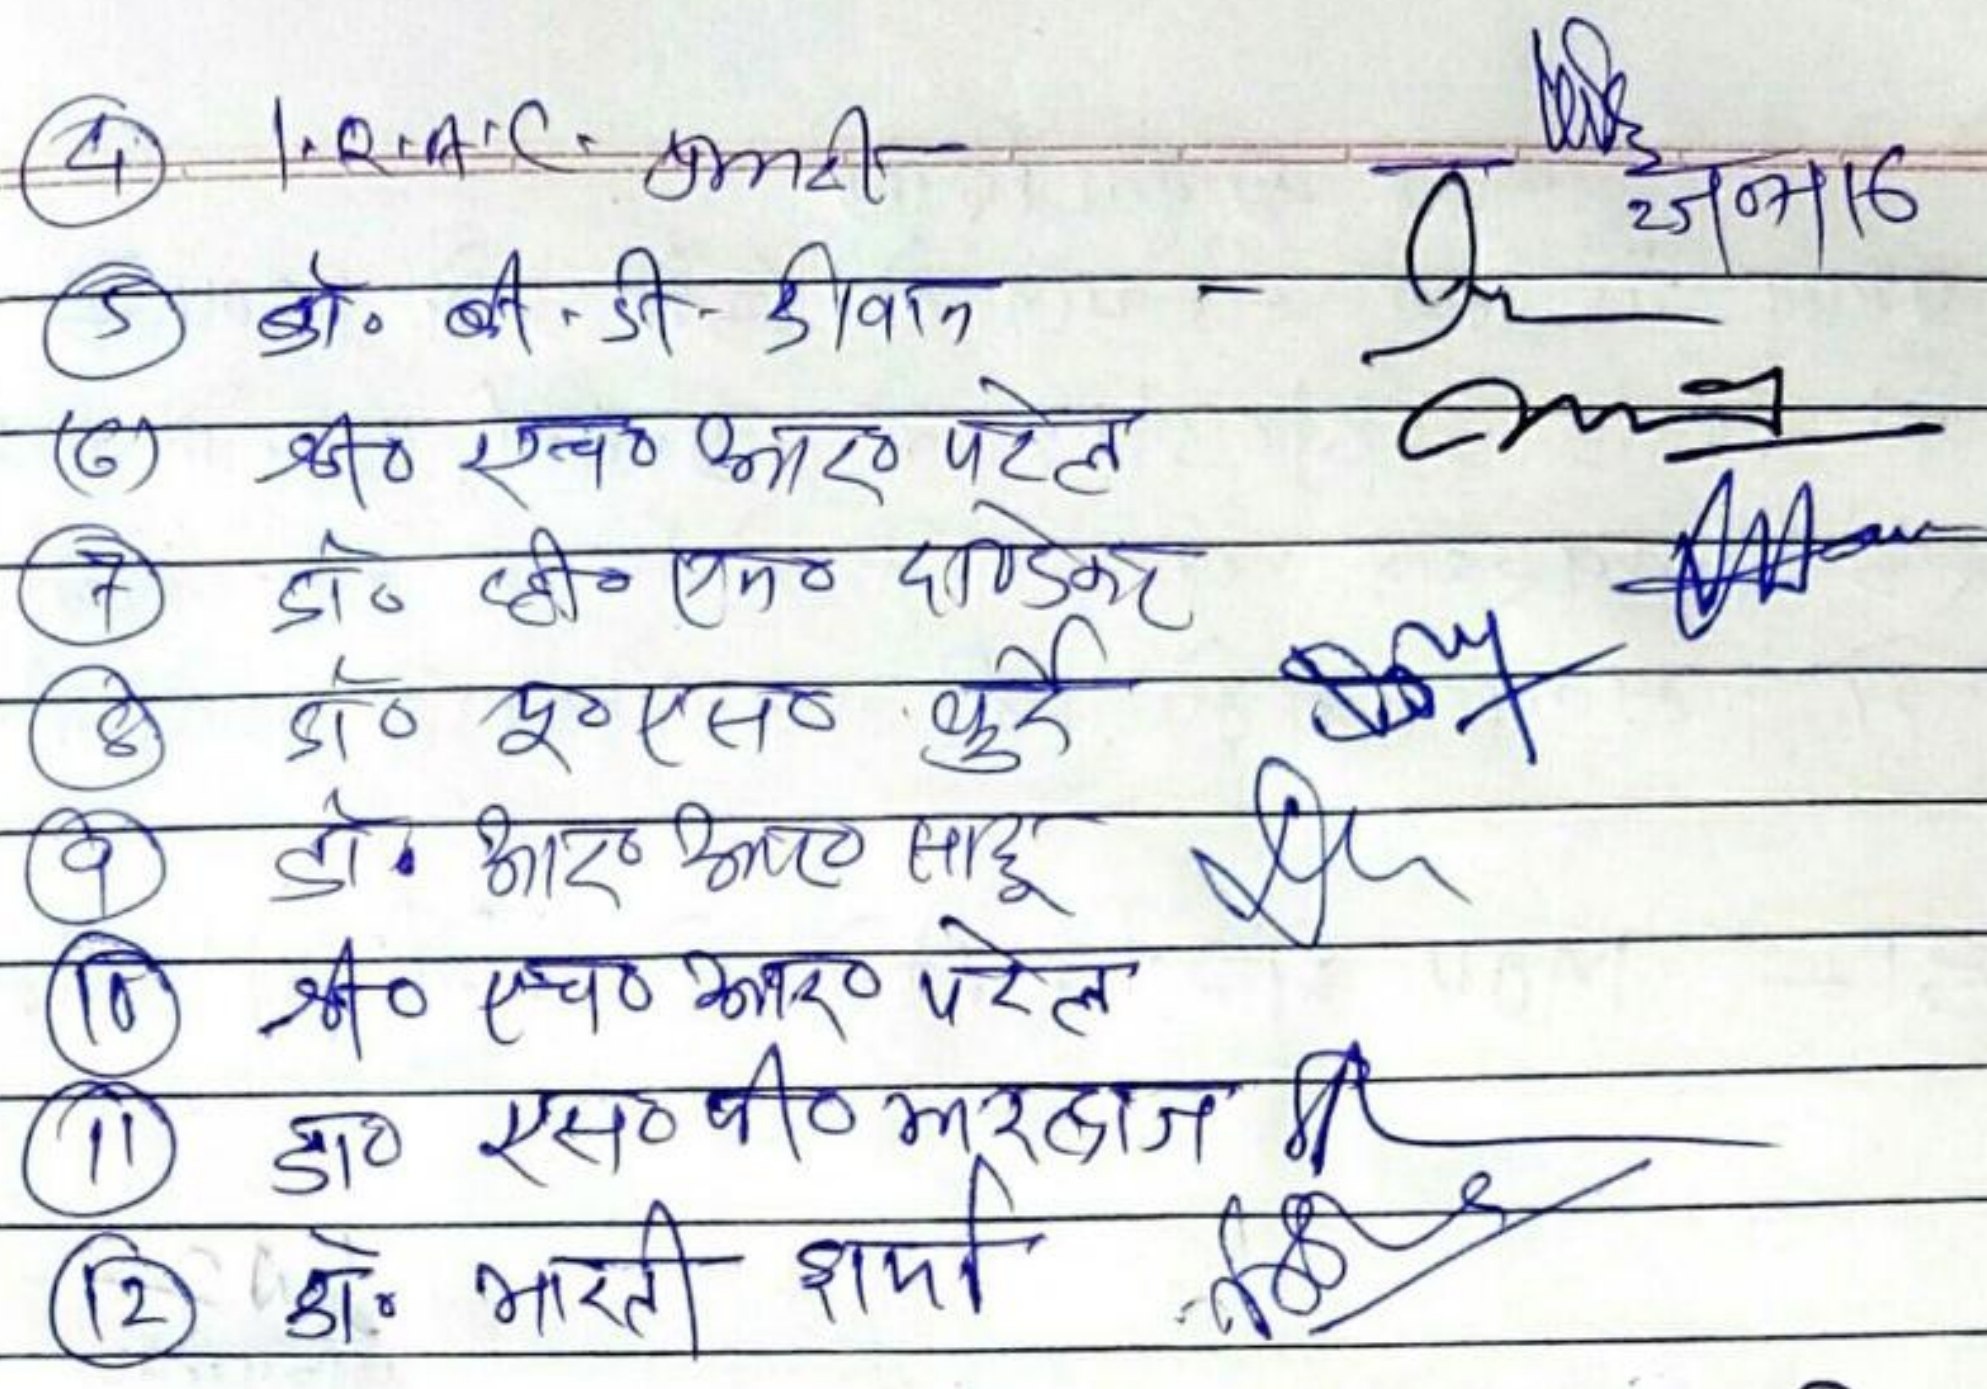 4 I.Q.A.C. प्रभारी
25/07/16
5 डॉ. बी. डी. दीवान -
(6) श्री० एच० आर० पटेल
7 डॉ० व्ही० एन० दाण्डेकर
8 डॉ० यू० एस० कुर्रे
9 डॉ. आर० आर० साहू
10 श्री० एच० आर० पटेल
11 डा० एस० पी० भारद्वाज
12 डॉ० भारती शर्मा